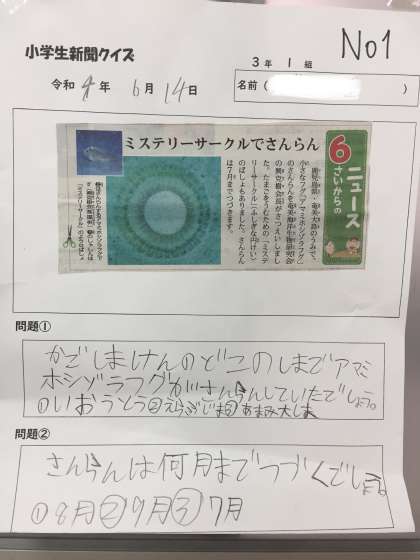 No1
小学生新聞クイズ
3年 1組
令和4年 6月 14日
名前（
）
ミステリーサークルでさんらん
6さいからの
ニュース
鹿児島県・奄美大島のうみで、
小さなフグ「アマミホシゾラフグ」
のさんらんを奄美海洋生物研究会
の興克樹会長がさつえいしまし
た。たまごをうむための「ミステ
リーサークル」（ふしぎな円けい）
のばしょもありました。さんらん
は7月までつづきます。
問題①
かごしまけんのどこのしまでアマミ
ホシゾラフグがさんらんしていたでしょう。
①いおうとう②えらぶじま③あまみ大しま
問題②
さんらんは何月までつづくでしょう。
①8月②9月③7月